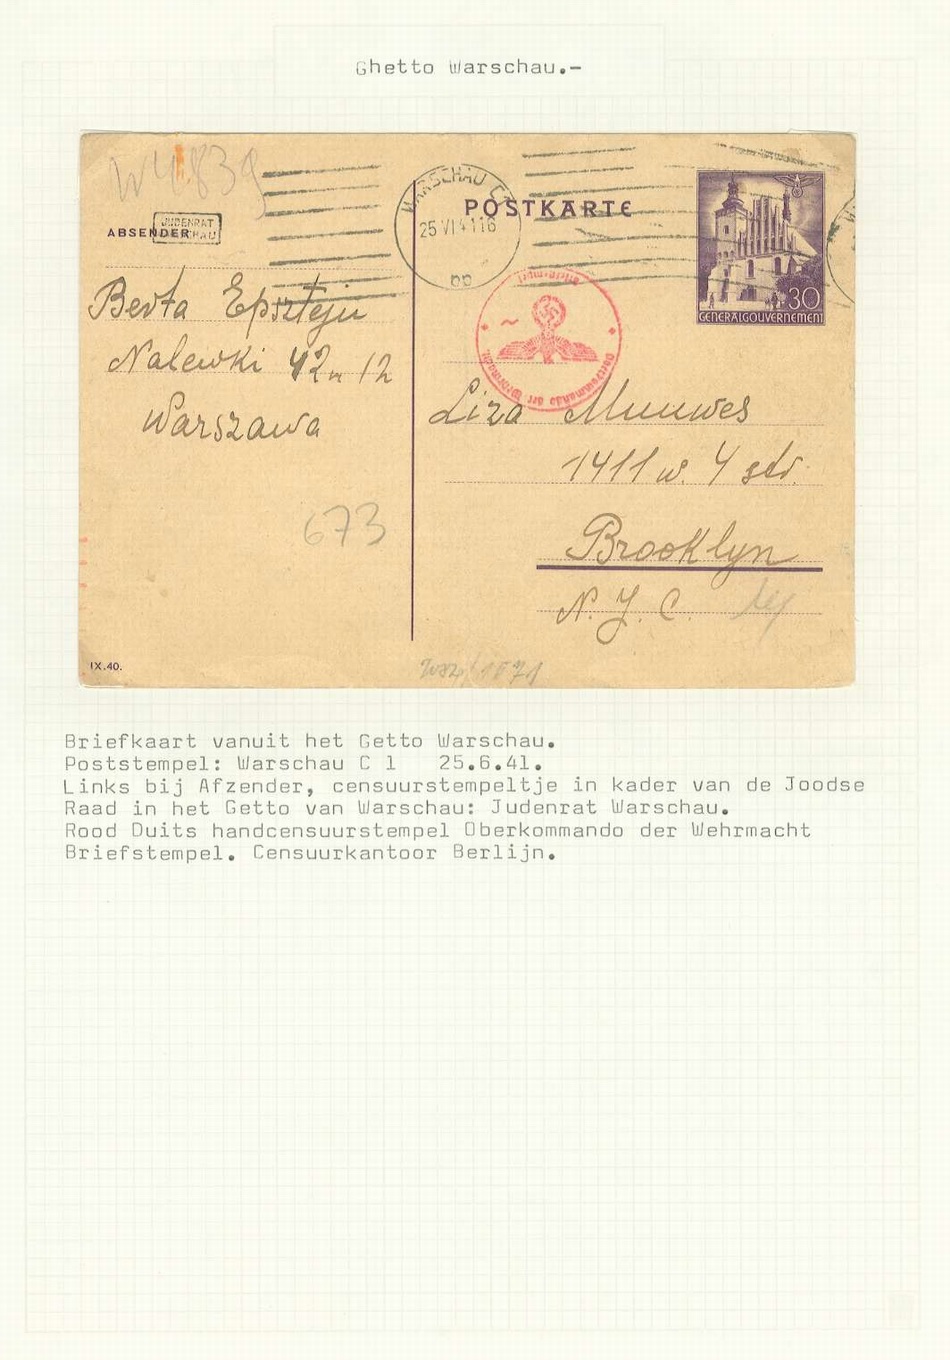 Ghetto Warschau.-
W4839
WARSCHAU C1
25 VI 41 16
bb
POSTKARTE
JUDENRAT
WARSCHAU
ABSENDER
Berta Epsztejn
Nalewki 42 m 12
Warszawa
673
IX.40.
30
GENERALGOUVERNEMENT
Oberkommando der Wehrmacht
Briefstempel
Liza
1411 w. 4 str.
Brooklyn
N. Y. C.
Briefkaart vanuit het Getto Warschau.
Poststempel: Warschau C 1   25.6.41.
Links bij Afzender, censuurstempeltje in kader van de Joodse
Raad in het Getto van Warschau: Judenrat Warschau.
Rood Duits handcensuurstempel Oberkommando der Wehrmacht
Briefstempel. Censuurkantoor Berlijn.